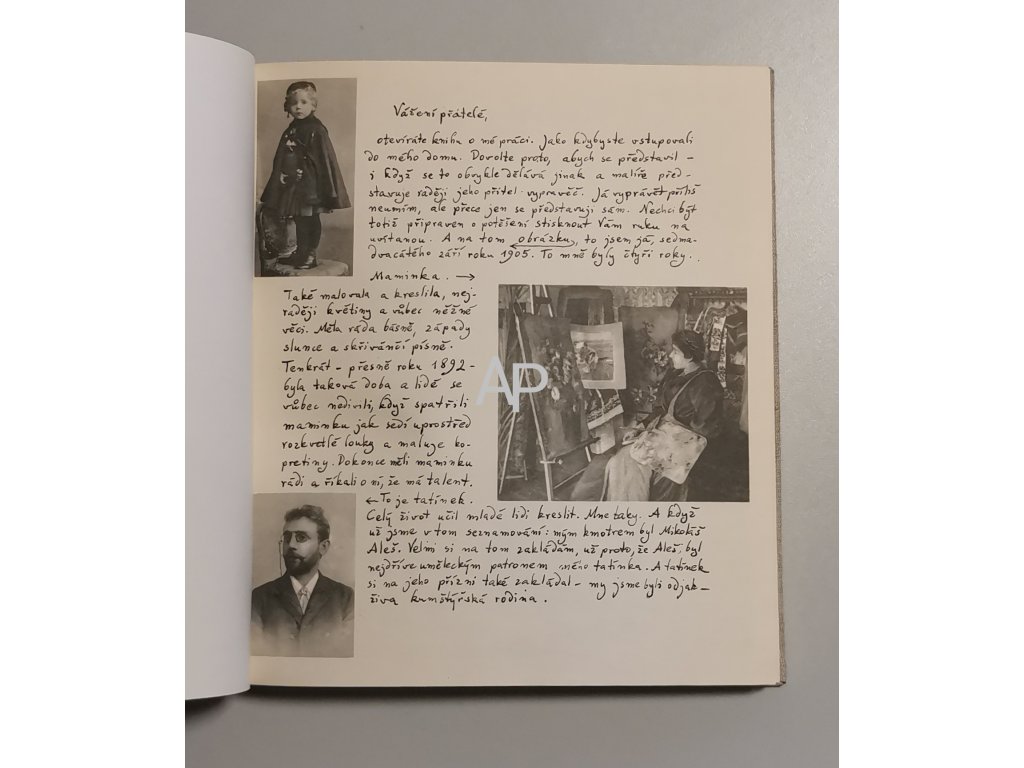 Vážení přátelé,
otevíráte knihu o mé práci. Jako kdybyste vstupovali
do mého domu. Dovolte proto, abych se představil –
i když se to obvykle dělává jinak a malíře před-
stavuje raději jeho přítel vypravěč. Já vyprávět příliš
neumím, ale přece jen se představuji sám. Nechci být
totiž připraven o potěšení stisknout Vám ruku na
uvítanou. A na tom obrázku, to jsem já, sedma-
dvacátého září roku 1905. To mně byly čtyři roky.
Maminka. →
Také malovala a kreslila, nej-
raději květiny a vůbec něžné
věci. Měla ráda básně, západy
slunce a skřivánčí písně.
Tenkrát – přesně roku 1892 –
byla taková doba a lidé se
vůbec nedivili, když spatřili
maminku jak sedí uprostřed
rozkvetlé louky a maluje ko-
pretiny. Dokonce měli maminku
rádi a říkali o ní, že má talent.
← To je tatínek.
Celý život učil mladé lidi kreslit. Mne taky. A když
už jsme v tom seznamování: mým kmotrem byl Mikoláš
Aleš. Velmi si na tom zakládám, už proto, že Aleš byl
nejdříve uměleckým patronem mého tatínka. A tatínek
si na jeho přízni také zakládal – my jsme byli odjak-
živa kumštýřská rodina.
AP